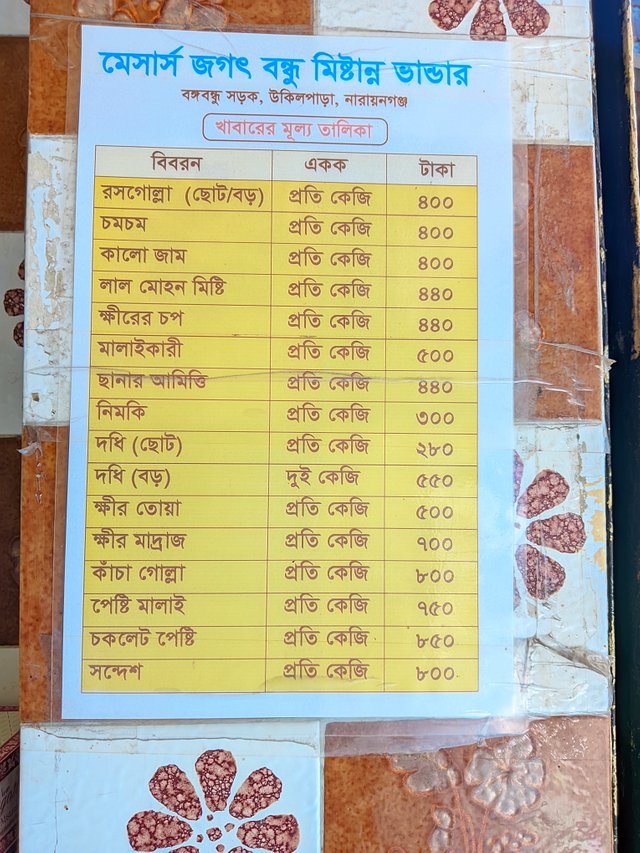 মেসার্স জগৎ বন্ধু মিষ্টান্ন ভান্ডার
বঙ্গবন্ধু সড়ক, উকিলপাড়া, নারায়নগঞ্জ
খাবারের মূল্য তালিকা
বিবরন একক টাকা
রসগোল্লা (ছোট/বড়) প্রতি কেজি ৪০০
চমচম প্রতি কেজি ৪০০
কালো জাম প্রতি কেজি ৪০০
লাল মোহন মিষ্টি প্রতি কেজি ৪৪০
ক্ষীরের চপ প্রতি কেজি ৪৪০
মালাইকারী প্রতি কেজি ৫০০
ছানার আমিত্তি প্রতি কেজি ৪৪০
নিমকি প্রতি কেজি ৩০০
দধি (ছোট) প্রতি কেজি ২৮০
দধি (বড়) দুই কেজি ৫৫০
ক্ষীর তোয়া প্রতি কেজি ৫০০
ক্ষীর মাদ্রাজ প্রতি কেজি ৭০০
কাঁচা গোল্লা প্রতি কেজি ৮০০
পেষ্টি মালাই প্রতি কেজি ৭৫০
চকলেট পেষ্টি প্রতি কেজি ৮৫০
সন্দেশ প্রতি কেজি ৮০০